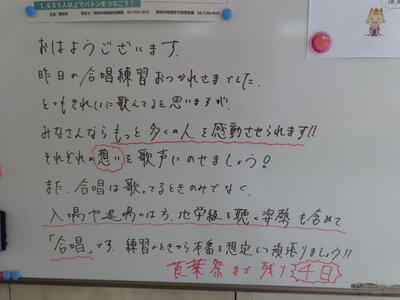 1,685人以上でバトンをつなごう!
おはようございます。
昨日の合唱練習おつかれさまでした。
とてもきれいに歌えてると思いますが、
みなさんならもっと多くの人を感動させられます!!
それぞれの想いを歌声にのせましょう!
また、合唱は歌ってるときのみでなく、
入場や退場のしかた、他学級を聴く姿勢も含めて
「合唱」です。練習のときから本番を想定して頑張りましょう!!
葉祭まで残り4日